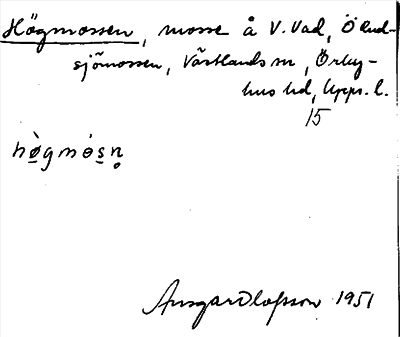 Högmossen, mosse å V. Vad, Ölud-
sjömossen, Västlands sn, Örby-
hus hd, Upps. l.
15
hø̀gmósn̥
Ansgar Olofsson 1951